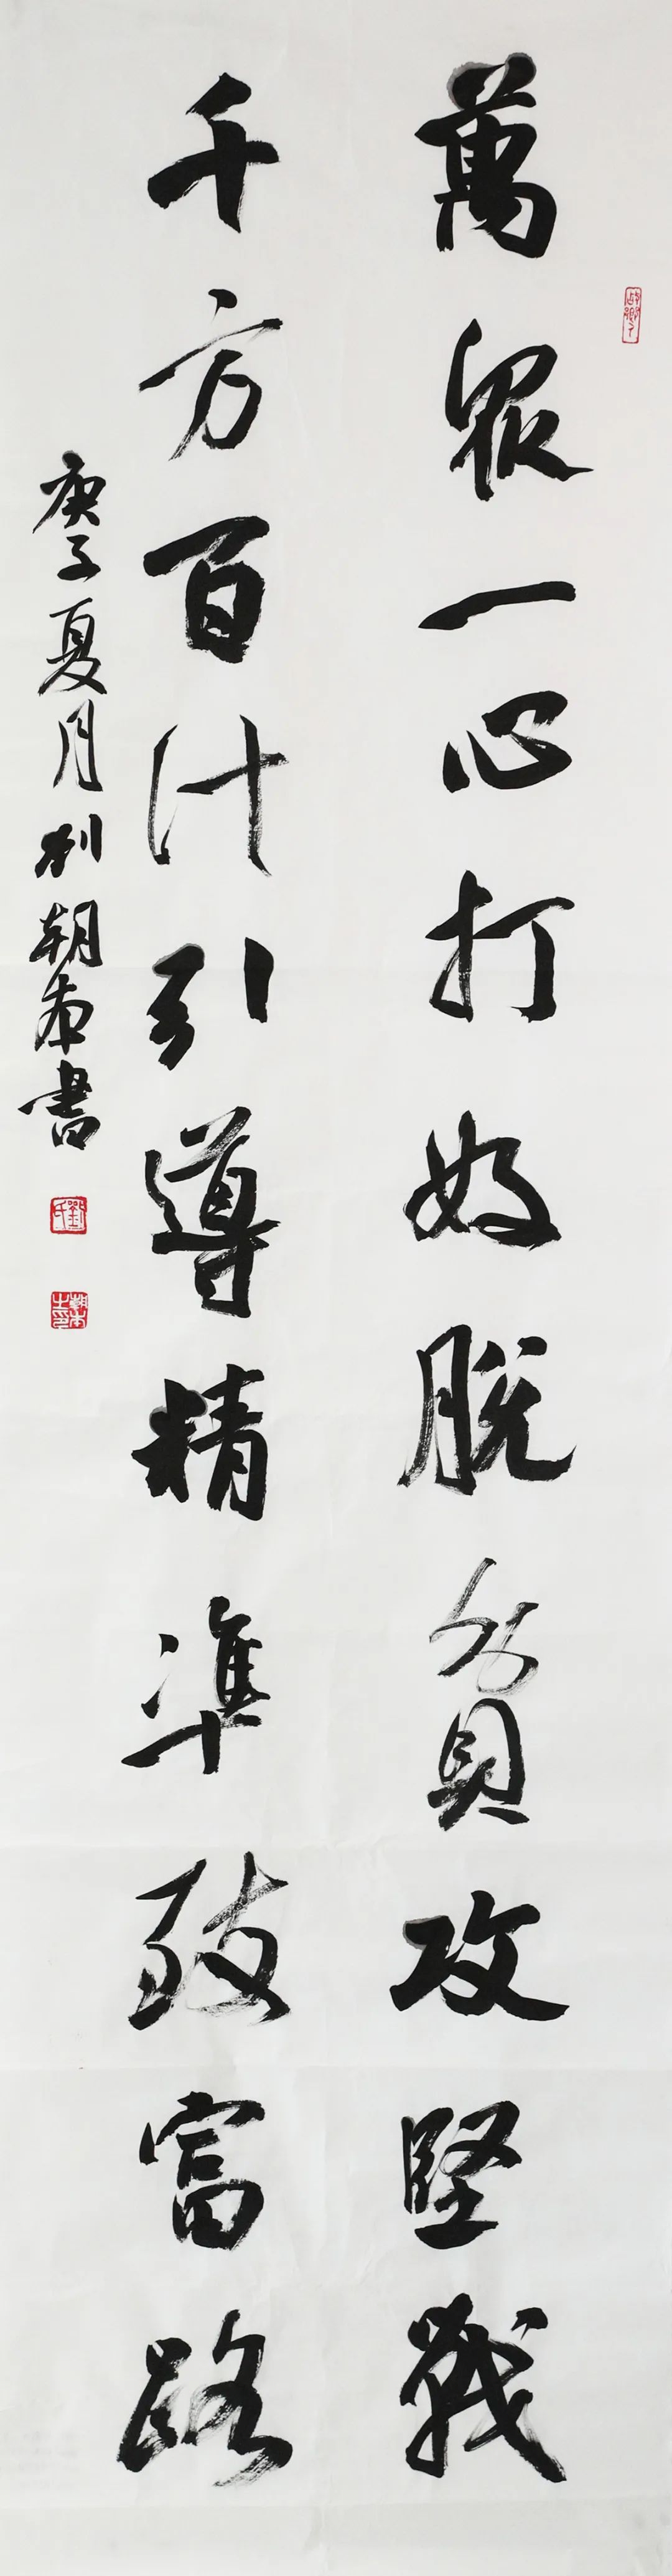 萬眾一心打好脫貧攻堅戰
千方百計引導精準致富路
庚子夏月刘朝本書
劉氏